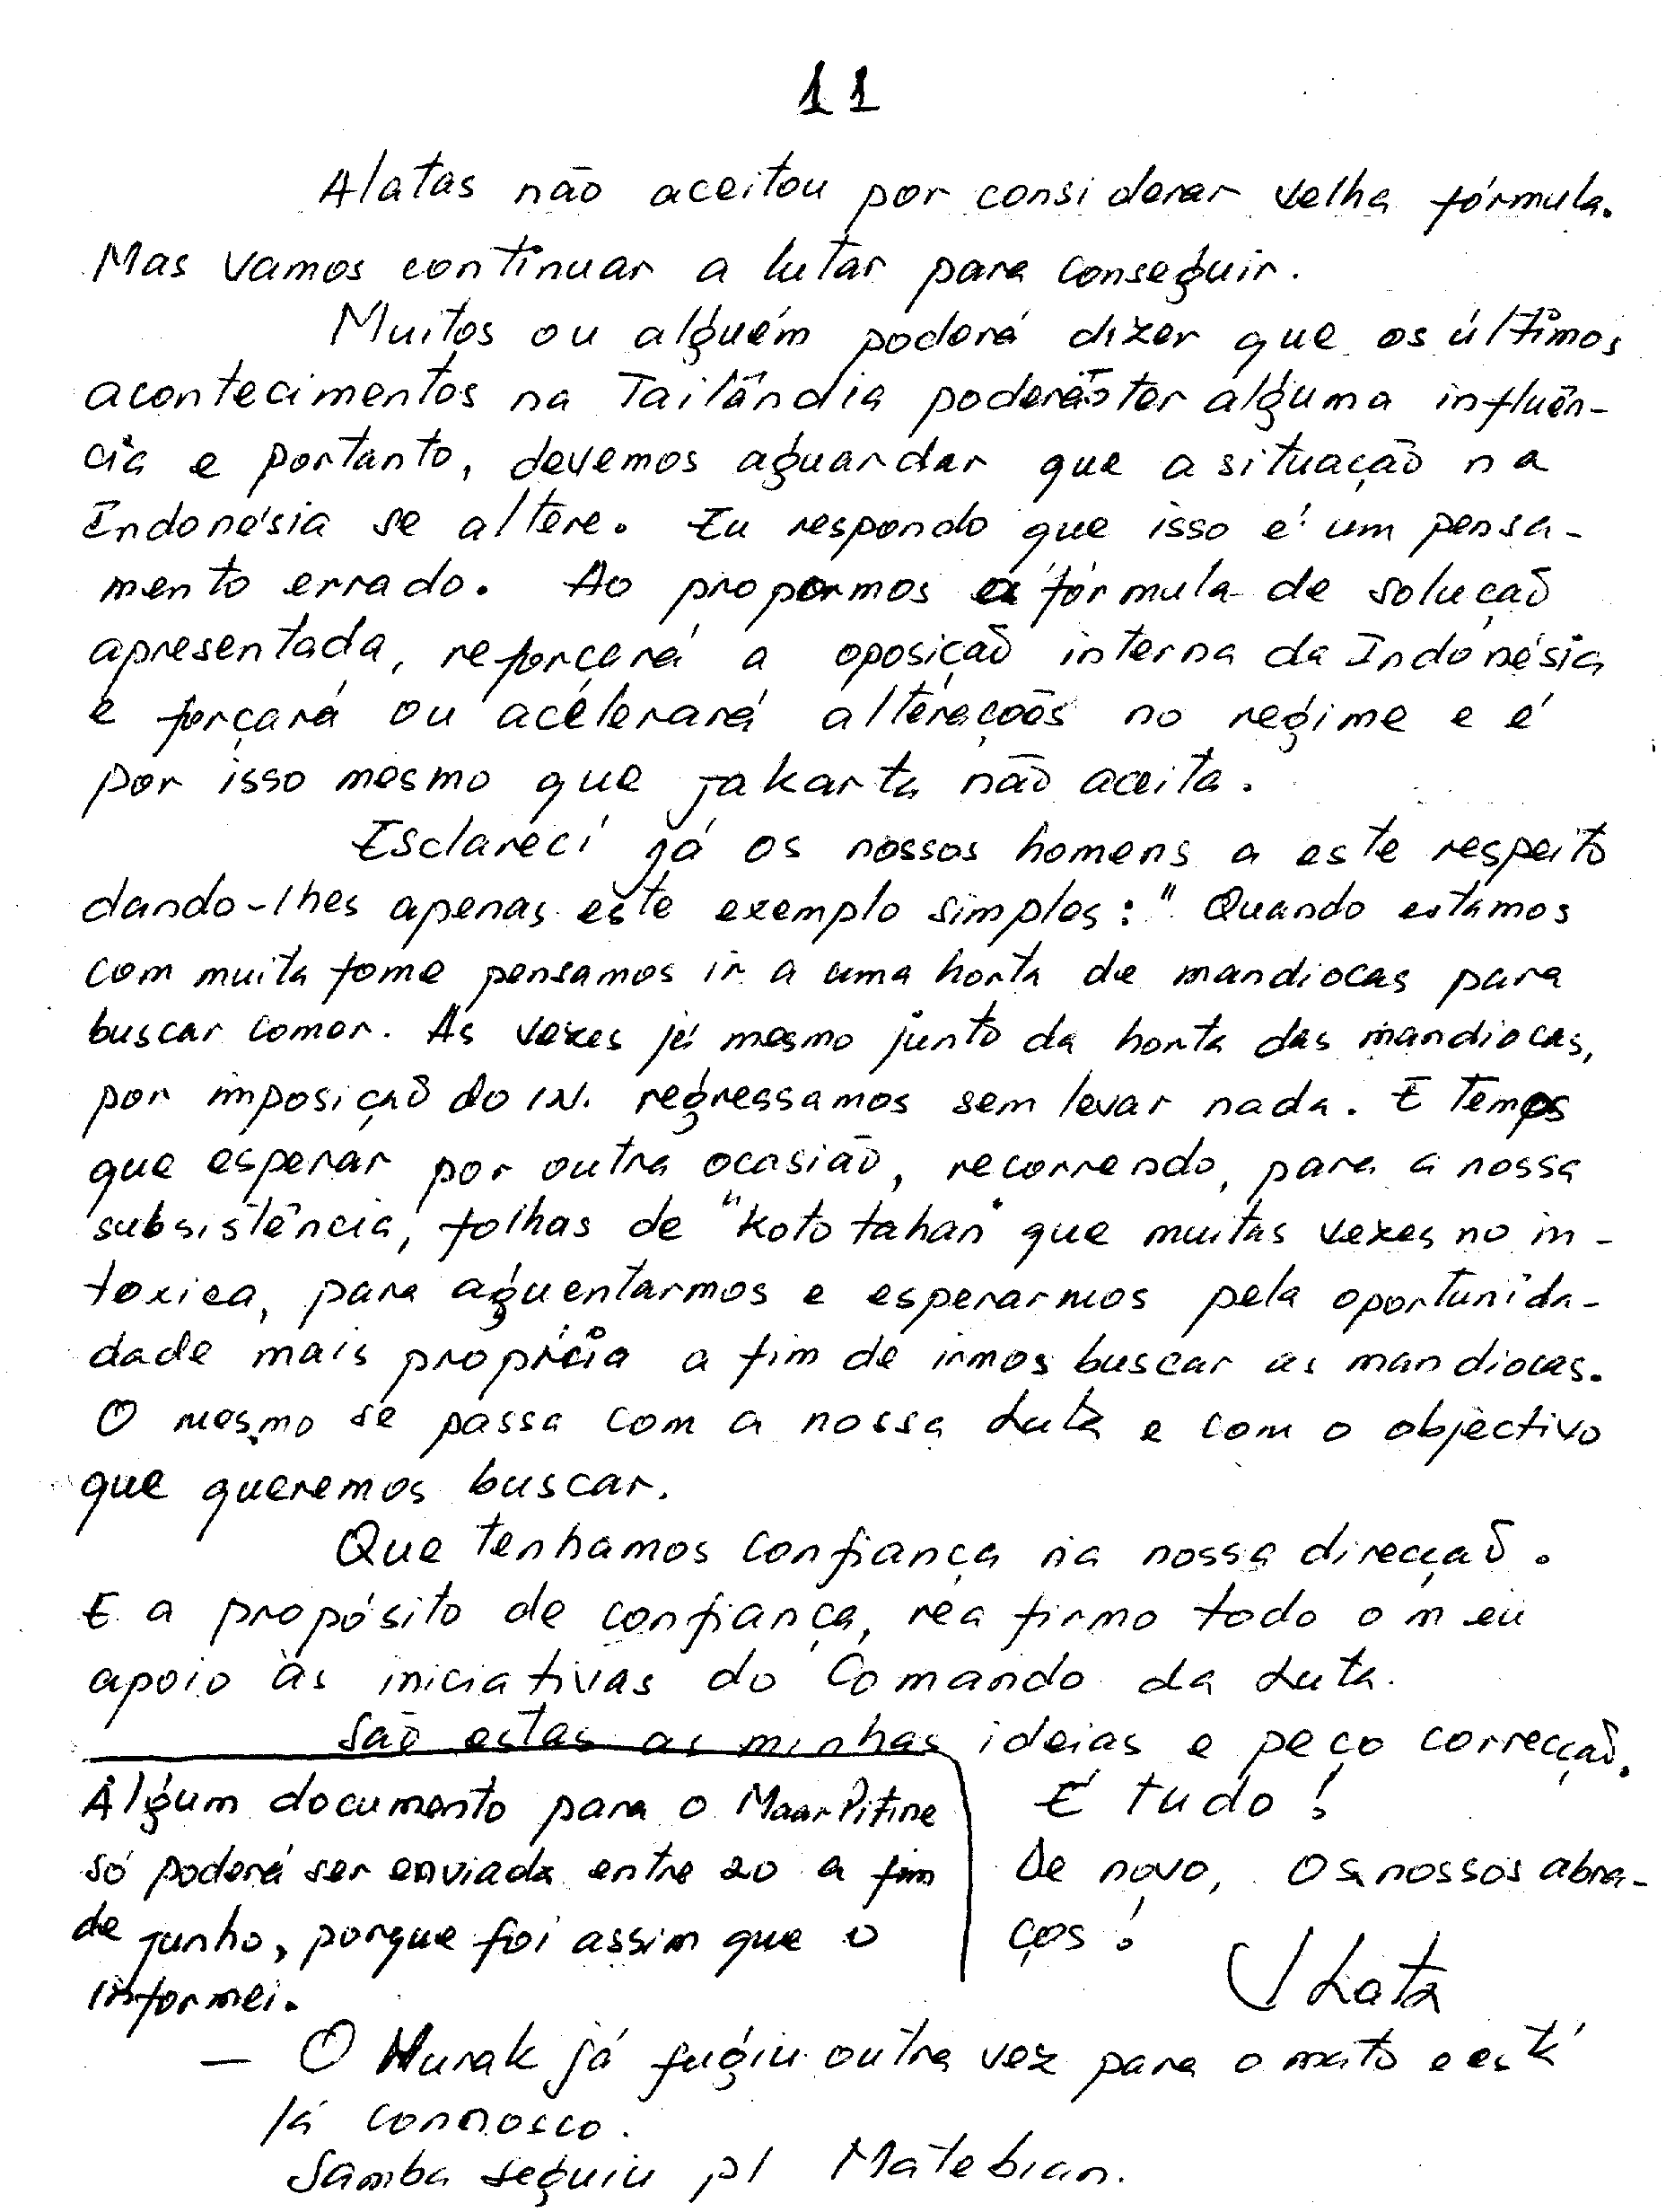 11
Alatas não aceitou por considerar velha fórmula.
Mas vamos continuar a lutar para conseguir.
Muitos ou alguém poderá dizer que os últimos
acontecimentos na Tailândia poderão ter alguma influên-
cia e portanto, devemos aguardar que a situação na
Indonésia se altere. Eu respondo que isso é um pensa-
mento errado. Ao propormos a fórmula de solução
apresentada, reforçará a oposição interna da Indonésia
e forçará ou acelerará alterações no regime e é
por isso mesmo que Jakarta não aceita.
Esclareci já os nossos homens a este respeito
dando-lhes apenas este exemplo simples: "Quando estamos
com muita fome pensamos ir a uma horta de mandiocas para
buscar comer. Às vezes já mesmo junto da horta das mandiocas,
por imposição do IN. regressamos sem levar nada. E temos
que esperar por outra ocasião, recorrendo, para a nossa
subsistência, folhas de "koto tahan" que muitas vezes no in-
toxica, para aguentarmos e esperarmos pela oportunida-
dade mais propícia a fim de irmos buscar as mandiocas.
O mesmo se passa com a nossa Luta e com o objectivo
que queremos buscar.
Que tenhamos confiança na nossa direcção.
E a propósito de confiança, reafirmo todo o meu
apoio às iniciativas do Comando da Luta.
São estas as minhas ideias e peço correcção.
É tudo!
De novo, os nossos abra-
ços!
Lata
Algum documento para o Maar Pitine
só poderá ser enviada entre 20 a fim
de junho, porque foi assim que o
informei.
— O Hurak já fugiu outra vez para o mato e está
lá connosco.
Samba seguiu p/ Matebian.